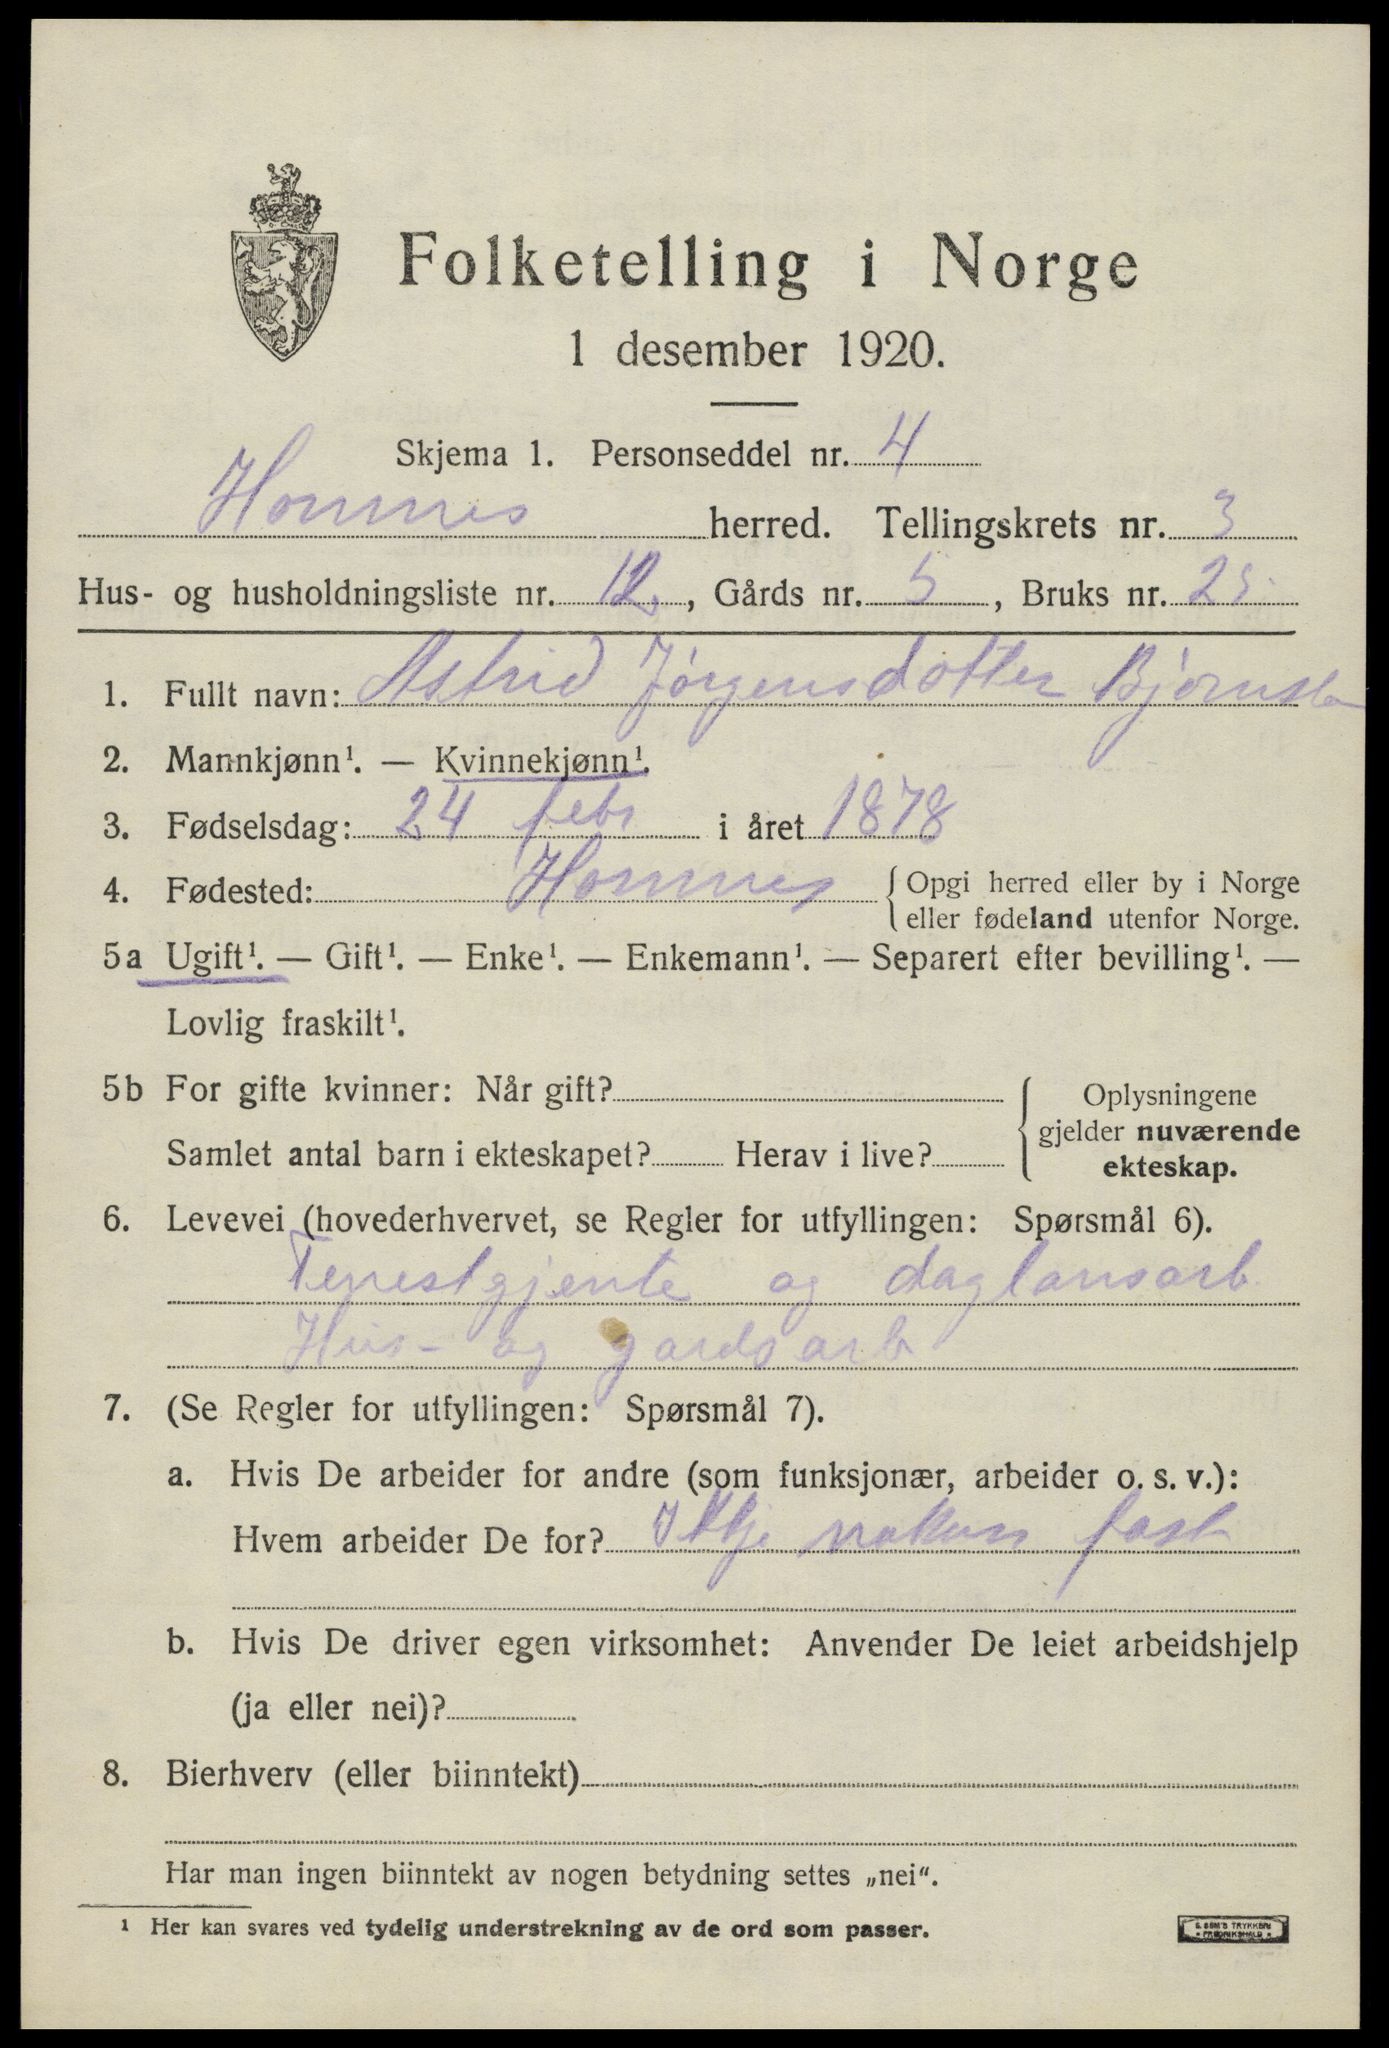 Folketelling i Norge
1 desember 1920.
Skjema 1. Personseddel nr. 4
Hornnes herred. Tellingskrets nr. 3
Hus- og husholdningsliste nr. 12, Gårds nr. 5, Bruks nr. 25
1. Fullt navn: Astrid Jørgensdotter
2. Mannkjønn¹. — Kvinnekjønn¹.
3. Fødselsdag: 24 febr i året 1878
4. Fødested: Hornnes {Opgi herred eller by i Norge
eller fødeland utenfor Norge.
5a Ugift¹. — Gift¹. — Enke¹. — Enkemann¹. — Separert efter bevilling¹. —
Lovlig fraskilt¹.
5b For gifte kvinner: Når gift?
Samlet antal barn i ekteskapet? Herav i live?
Oplysningene
gjelder nuværende
ekteskap.
6. Levevei (hovederhvervet, se Regler for utfyllingen: Spørsmål 6).
Tenestgjente og daglønsarb
Hus- og gardsarb
7. (Se Regler for utfyllingen: Spørsmål 7).
a. Hvis De arbeider for andre (som funksjonær, arbeider o. s. v.):
Hvem arbeider De for? Ikkje nokon fast
b. Hvis De driver egen virksomhet: Anvender De leiet arbeidshjelp
(ja eller nei)?
8. Bierhverv (eller biinntekt)
Har man ingen biinntekt av nogen betydning settes „nei“.
¹ Her kan svares ved tydelig understrekning av de ord som passer.